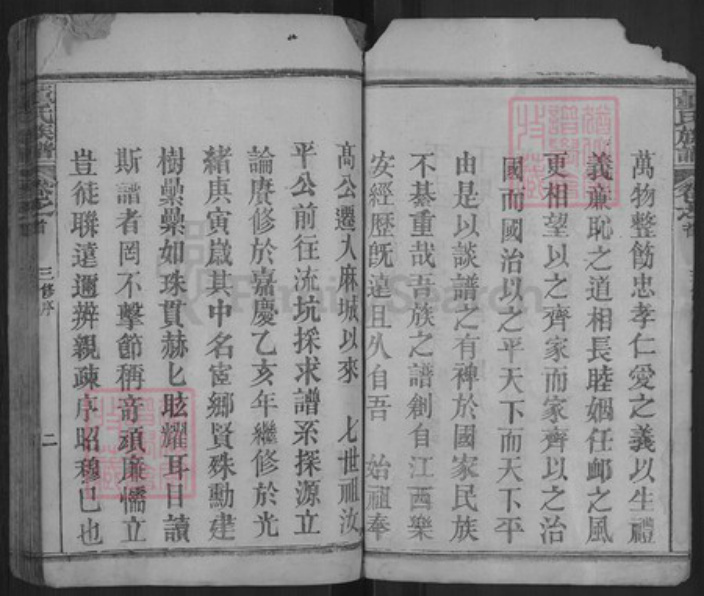 萬物整飭忠孝仁愛之義以生禮
義廉恥之道相長睦婣任卹之風
更相望以之齊家而家齊以之治
國而國治以之平天下而天下平
由是以談譜之有裨於國家民族
不綦重哉吾族之譜創自江西樂
安經歷旣遠且久自吾 始祖奉
高公遷入麻城以來 七世祖汝
平公前往流坑採求譜系探源立
論賡修於嘉慶乙亥年繼修於光
緒庚寅歲其中名宦鄉賢殊勳建
樹纍纍如珠貫赫匕眩耀耳目讀
斯譜者罔不擊節稱奇頑廉懦立
豈徒聯遠邇辨親疎序昭穆已也
氏族譜 卷之首 三修序 二
FamilySearch